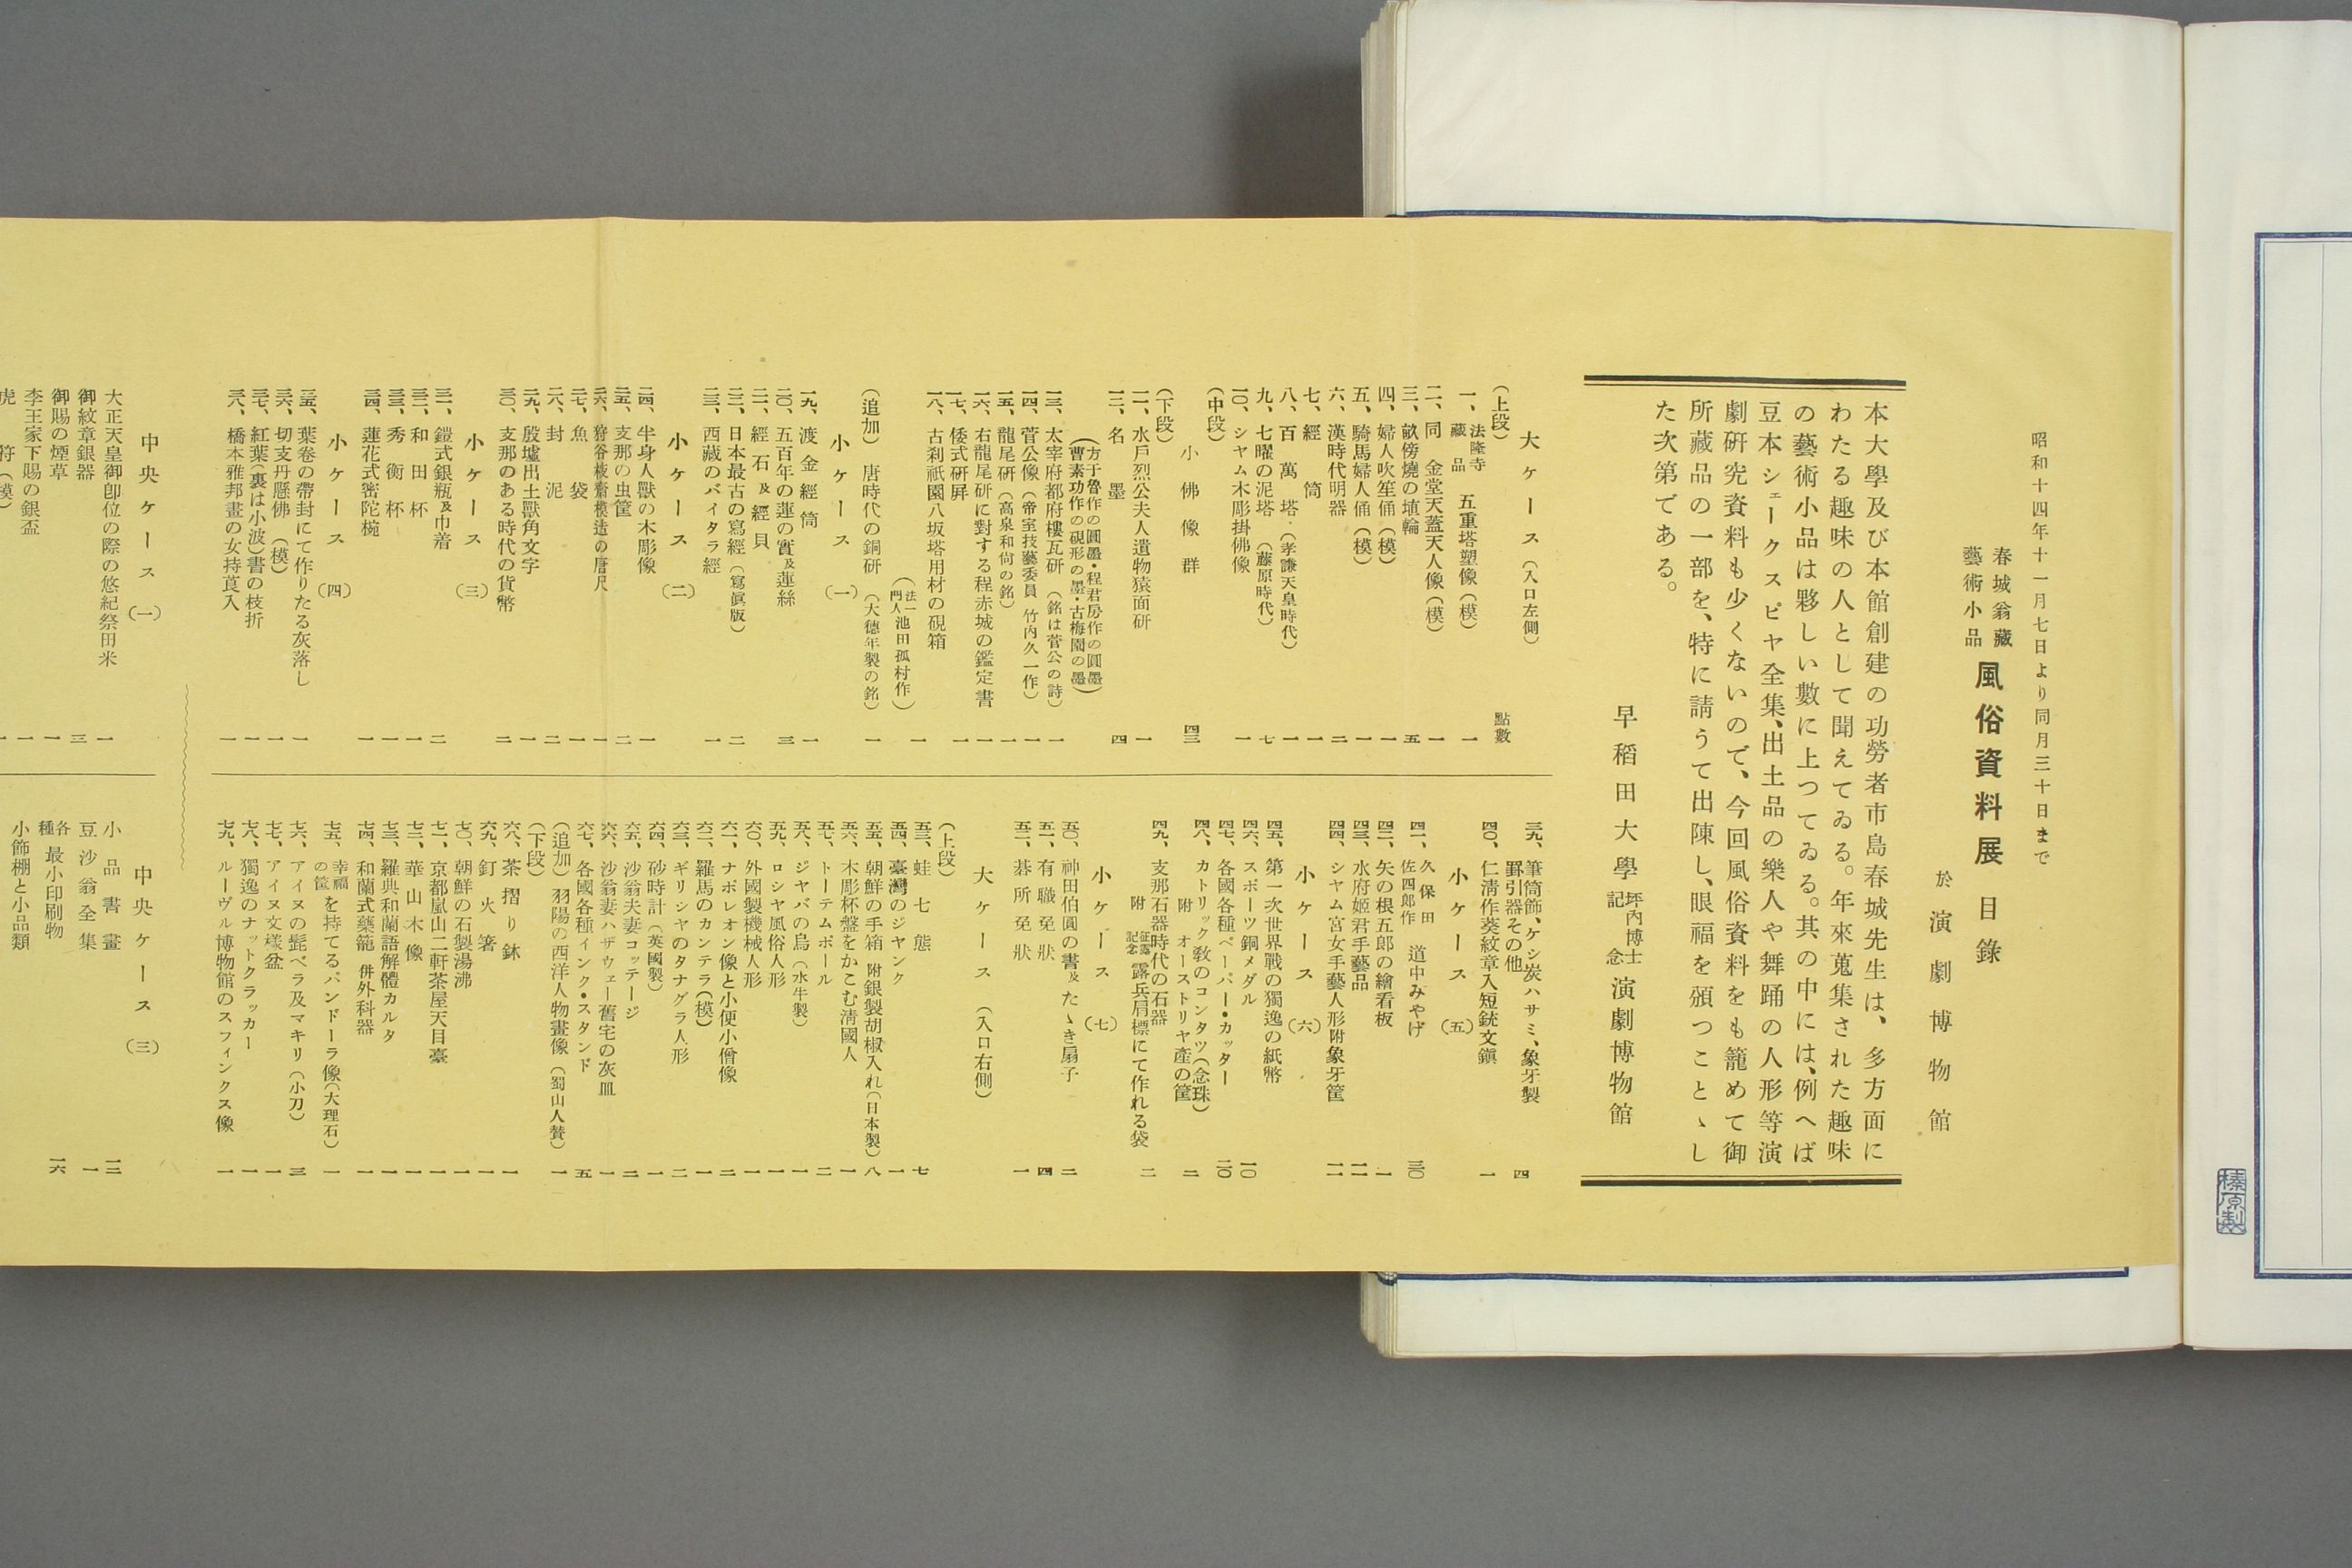 昭和十四年十一月七日より同月三十日まで
春城翁藏
藝術小品
風俗資料展目錄
於演劇博物館
本大學及び本館創建の功勞者市島春城先生は、多方面に
わたる趣味の人として聞えてゐる。年來蒐集された趣味
の藝術小品は夥しい數に上つてゐる。其の中には、例へば
豆本シェークスピヤ全集、出土品の樂人や舞踊の人形等演
劇硏究資料も少くないので、今回風俗資料をも籠めて御
所藏品の一部を、特に請うて出陳し、眼福を頒つことゝし
た次第である。
早稻田大學坪內博士記念演劇博物館
大ケース(入口左側)
(上段) 點數
一、法隆寺藏品 五重塔塑像(模) 一
二、同 金堂天蓋天人像(模) 一
三、畝傍燒の埴輪 五
四、婦人吹笙俑(模) 一
五、騎馬婦人俑(模) 一
六、漢時代明器 二
七、經筒 一
八、百萬塔・(孝謙天皇時代) 一
九、七曜の泥塔(藤原時代) 七
一〇、シヤム木彫掛佛像 一
(中段)
小佛像群 四三
(下段)
一一、水戶烈公夫人遺物猿面硏 一
一二、名墨 四
(方于魯作の圓墨・程君房作の圓墨)
(曹素功作の硯形の墨・古梅園の墨)
一三、太宰府都府樓瓦硏(銘は菅公の詩) 一
一四、菅公像(帝室技藝委員 竹內久一作) 一
一五、龍尾硏(高泉和尙の銘) 一
一六、右龍尾硏に對する程赤城の鑑定書 一
一七、倭式硏屛 一
一八、古刹祇園八坂塔用材の硯箱 一
(法一門人池田孤村作)
(追加) 唐時代の銅硏(大德年製の銘) 一
小ケース(一)
一九、渡金經筒 一
二〇、五百年の蓮の實及蓮絲 三
二一、經石及經貝
二二、日本最古の寫經(寫眞版) 二
二三、西藏のバイタラ經 一
小ケース(二)
二四、半身人獸の木彫像 一
二五、支那の虫筐 二
二六、狩谷棭齋模造の唐尺 一
二七、魚袋 一
二八、封泥 二
二九、殷墟出土獸角文字 一
三〇、支那のある時代の貨幣 二
小ケース(三)
三一、鎧式銀瓶及巾着 二
三二、和田杯 一
三三、秀衡杯 一
三四、蓮花式密陀椀 一
小ケース(四)
三五、葉卷の帶封にて作りたる灰落し 一
三六、切支丹懸佛(模) 一
三七、紅葉(裏は小波)書の枝折 一
三八、橋本雅邦畫の女持莨入 一
三九、筆筒飾、ケシ炭ハサミ、象牙製
罫引器その他 四
四〇、仁淸作葵紋章入短銃文鎭 一
小ケース(五)
四一、久保田佐四郎作 道中みやげ 三〇
四二、矢の根五郎の繪看板 一
四三、水府姬君手藝品 一一
四四、シヤム宮女手藝人形附象牙筐 一一
小ケース(六)
四五、第一次世界戰の獨逸の紙幣
四六、スポーツ銅メダル 一〇
四七、各國各種ペーパー・カッター 二〇
四八、カトリック敎のコンタツ(念珠)
附 オーストリヤ產の筐 二
四九、支那石器時代の石器
附 征露記念 露兵肩標にて作れる袋 二
小ケース(七)
五〇、神田伯圓の書及たゝき扇子 二
五一、有職免狀 四
五二、碁所免狀 一
大ケース(入口右側)
(上段)
五三、蛙七態 七
五四、臺灣のジヤンク 一
五五、朝鮮の手箱 附銀製胡椒入れ(日本製) 八
五六、木彫杯盤をかこむ淸國人 一
五七、トーテムポール 二
五八、ジヤバの鳥(水牛製) 一
五九、ロシヤ風俗人形 一
六〇、外國製機械人形 一
六一、ナポレオン像と小便小僧像 二
六二、羅馬のカンテラ(模) 一
六三、ギリシヤのタナグラ人形 二
六四、砂時計(英國製) 一
六五、沙翁夫妻コッテージ 二
六六、沙翁妻ハザウェー舊宅の灰皿 一
六七、各國各種インク・スタンド 五
(追加) 羽陽の西洋人物畫像(蜀山人贊) 一
(下段)
六八、茶摺り鉢 一
六九、釘火箸 一
七〇、朝鮮の石製湯沸 一
七一、京都嵐山二軒茶屋天目臺 一
七二、華山木像 一
七三、羅典和蘭語解體カルタ 一
七四、和蘭式藥籠 併外科器 一
七五、幸福の筐を持てるパンドーラ像(大理石) 一
七六、アイヌの髭ベラ及マキリ(小刀) 三
七七、アイヌ文樣盆 一
七八、獨逸のナットクラッカー 一
七九、ルーヴル博物館のスフィンクス像 一
中央ケース(一)
大正天皇御卽位の際の悠紀祭田米 一
御紋章銀器 三
御賜の煙草 一
李王家下賜の銀盃 一
虎符(模) 一
中央ケース(三)
小品書畫 一二
豆沙翁全集 一
各種最小印刷物 一六
小飾棚と小品類
榛原製